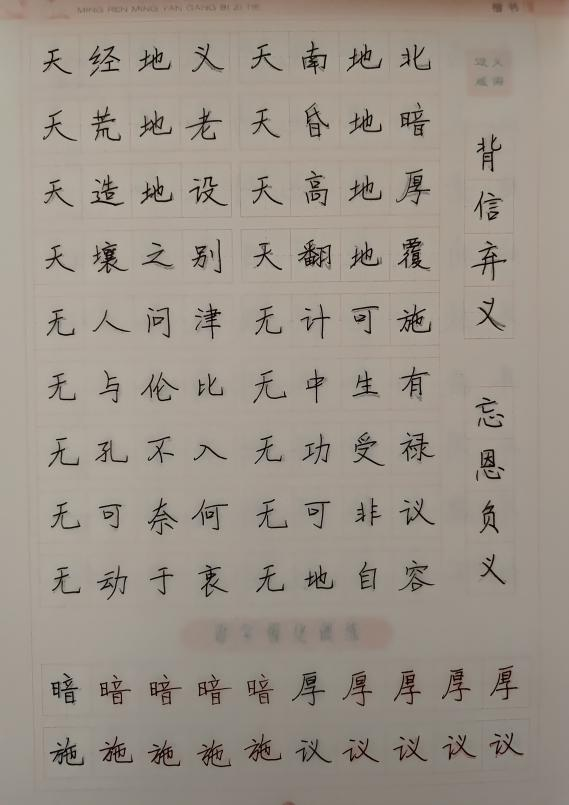 MING REN MING YAN GANG BI ZI TIE
楷书
天经地义 天南地北
天荒地老 天昏地暗
天造地设 天高地厚
天壤之别 天翻地覆
无人问津 无计可施
无与伦比 无中生有
无孔不入 无功受禄
无可奈何 无可非议
无动于衷 无地自容
背信弃义
忘恩负义
暗暗暗暗暗厚厚厚厚厚
施施施施施议议议议议